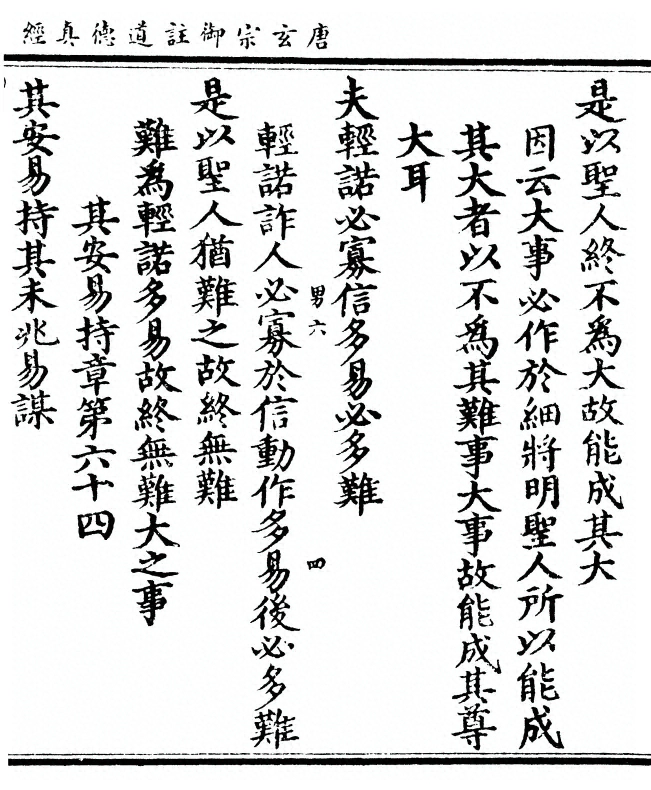 唐玄宗御註道德真經
是以聖人終不為大故能成其大
因云大事必作於細將明聖人所以能成
其大者以不為其難事大事故能成其尊
大耳
夫輕諾必寡信多易必多難
男六
四
輕諾詐人必寡於信動作多易後必多難
是以聖人猶難之故終無難
難為輕諾多易故終無難大之事
其安易持章第六十四
其安易持其未兆易謀